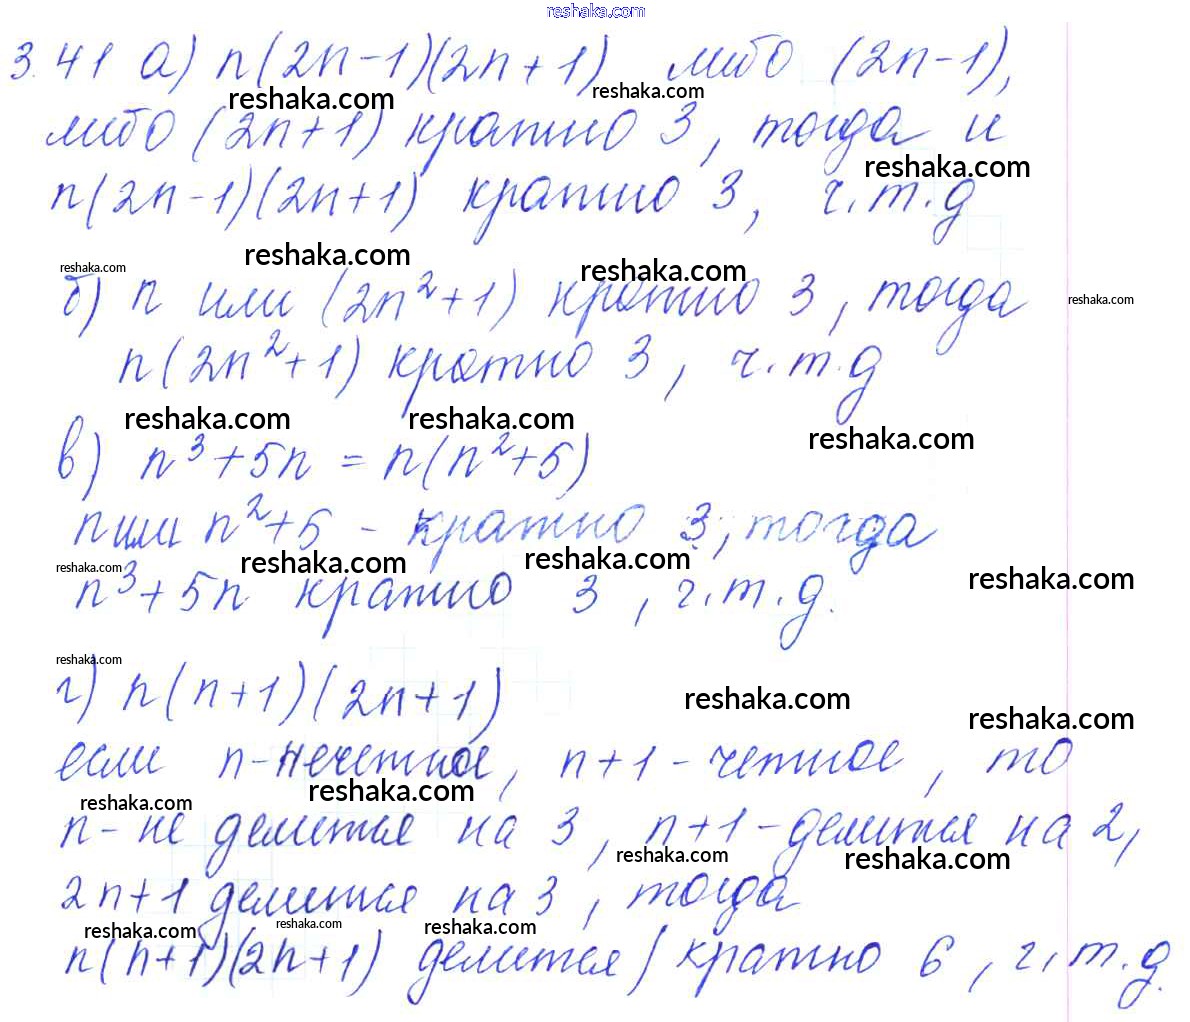 reshaka.com
3.41 а) n(2n-1)(2n+1) либо (2n-1),
reshaka.com reshaka.com
либо (2n+1) кратно 3, тогда и
reshaka.com
n(2n-1)(2n+1) кратно 3, ч.т.д
reshaka.com reshaka.com reshaka.com
б) n или (2n²+1) кратно 3, тогда reshaka.com
n(2n²+1) кратно 3, ч.т.д
reshaka.com reshaka.com reshaka.com
в) n³+5n = n(n²+5)
n или n²+5 - кратно 3, тогда
reshaka.com reshaka.com reshaka.com reshaka.com
n³+5n кратно 3, ч.т.д.
reshaka.com
г) n(n+1)(2n+1) reshaka.com
reshaka.com
если n-нечетное, n+1-четное, то
reshaka.com reshaka.com
n- не делится на 3, n+1-делится на 2,
reshaka.com reshaka.com
2n+1 делится на 3, тогда
reshaka.com reshaka.com reshaka.com
n(n+1)(2n+1) делится/кратно 6, ч.т.д.